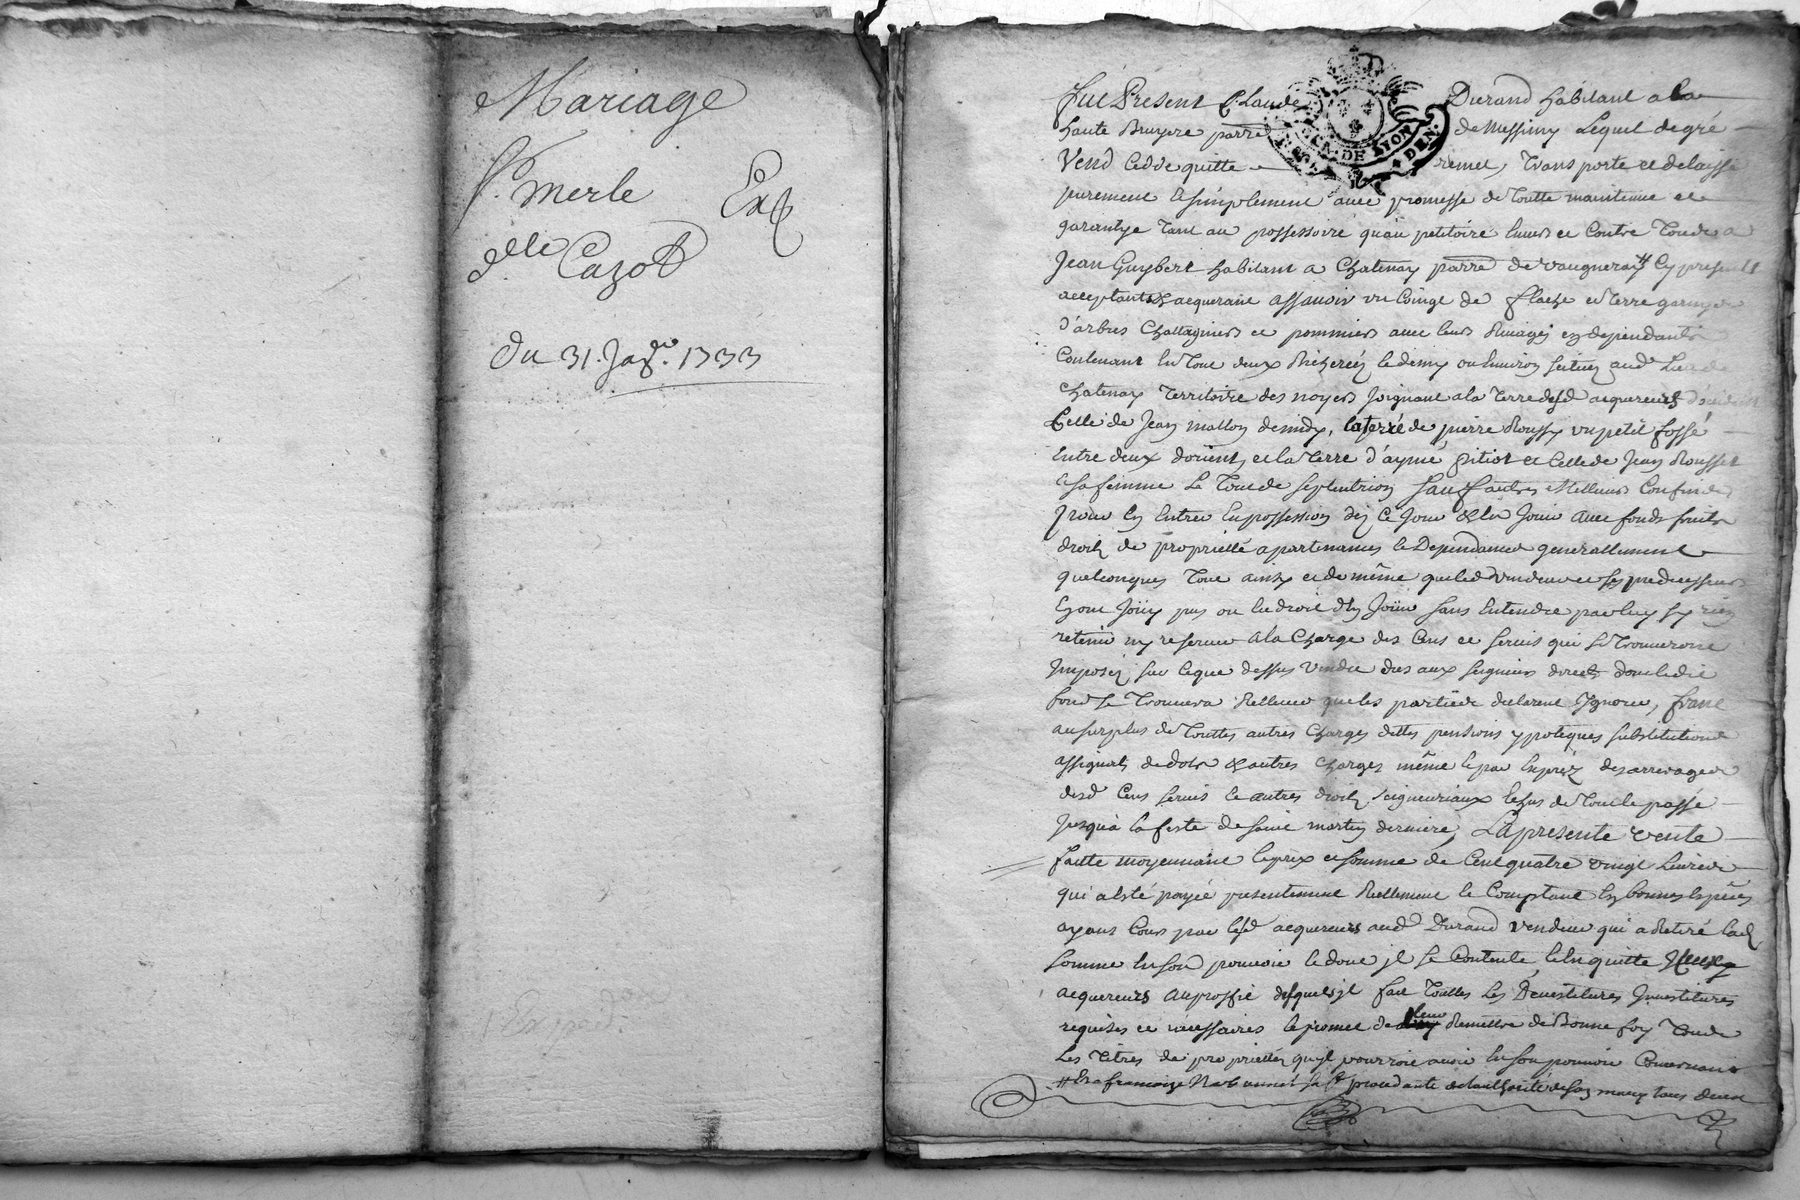 Mariage
Sr. Merle Exp
& delle Cazot
du 31. Janv. 1733
1 Expéd.
GEN. DE LYON
DEN.
fut Present Claude Durand habitant a la
haute Bruyere parre de Messimy Lequel de gré
Vend cedde quitte remet, transporte et delaisse
purement et simplement avec promesse de toutte maintenue et
garantye tant au possessoire qu'au petitoire envers et contre tous a
Jean Guybert habitant a Chatenay parre de vaugneray # Cy presents
acceptants et acquerant assavoir un Coing de flache et terre garnye
d'arbres Chattagniers et pommiers avec leurs dependants
Contenant en tout deux Bicherées et demy ou environ scituez aud. Lieu de
Chatenay territoire des noyers Joignant a la terre desd acquereurs
Celle de Jean mallon de midy, la terre de pierre Roussy un petit fossé
entre deux dorient, et la terre d'aymé pitiot et Celle de Jean Rousset
et sa femme le tout de septentrion sauf autres Meilleurs Confins
pour en entrer en possession dez ce Jour et en Jouir avec fonds fruits
droits de proprietté apartenances et Dependances generallement
quelconques tout ainsy et de même que led vendeur et ses predecesseurs
en ont Jouy pus ou eu droit d'en Joüir sans entendre par luy sy rien
retenir ny reserver a la Charge des Cens et servis qui se trouveront
Imposez sur ce que dessus vendu dus aux seigneurs directs dont ledit
fond se trouvera Relever que les parties declarent Ignorer, franc
au surplus de touttes autres Charges dettes pensions ypoteques substitutions
assignats de dots & autres Charges même et par exprez des arrerages
desd Cens servis et autres droits seigneuriaux echus de tout le passé
Jusqu'a la feste de saint martin derniere, La presente vente
faitte moyennant le prix et somme de Cent quatre vingt Livres
qui a esté payée presentement Reellement et Comptant en bonnes especes
ayant Cours par lesd acquereurs aud Durand vendeur qui a Retiré lad
somme en son pouvoir et dont il se Contente et en quitte
acquereurs au proffit desquels il fait touttes Les Devestitures Investitures
requises et necessaires et promet de leur Remettre de Bonne foy tous
Les titres de proprietté qu'il pourroit avoir en son pouvoir Concernant
# et a francoise sa fe procedante de l'authorité de son mary tous deux